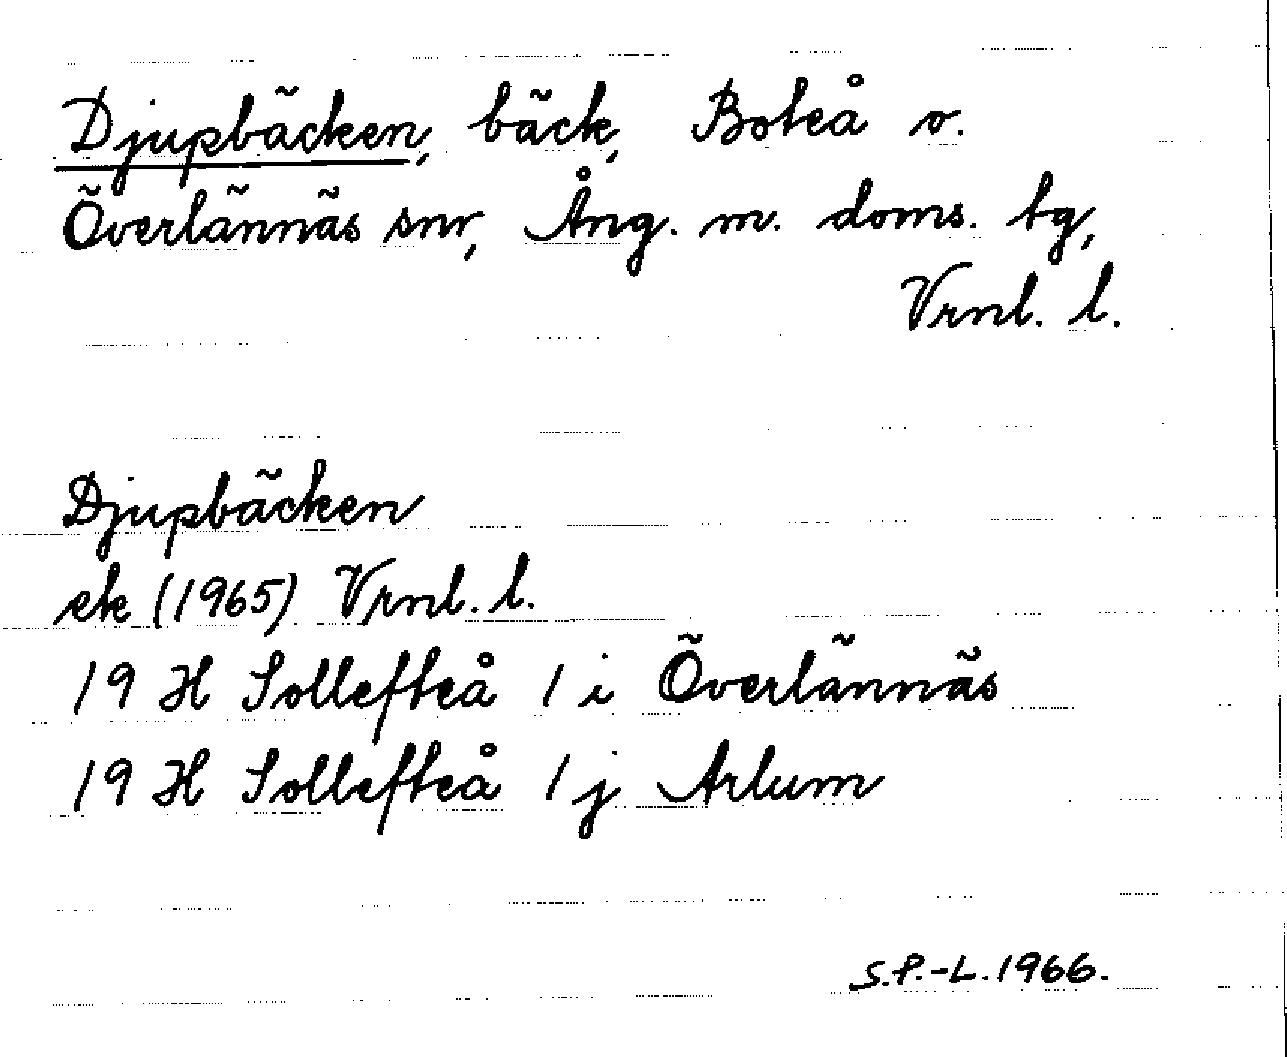 Djupbäcken, bäck, Boteå o.
Överlännäs snr, Ång. m. doms. tg,
Vrnl. l.
Djupbäcken
ek (1965) Vrnl. l.
19 H Sollefteå 1 i Överlännäs
19 H Sollefteå 1 j Arlum
S.P.-L. 1966.